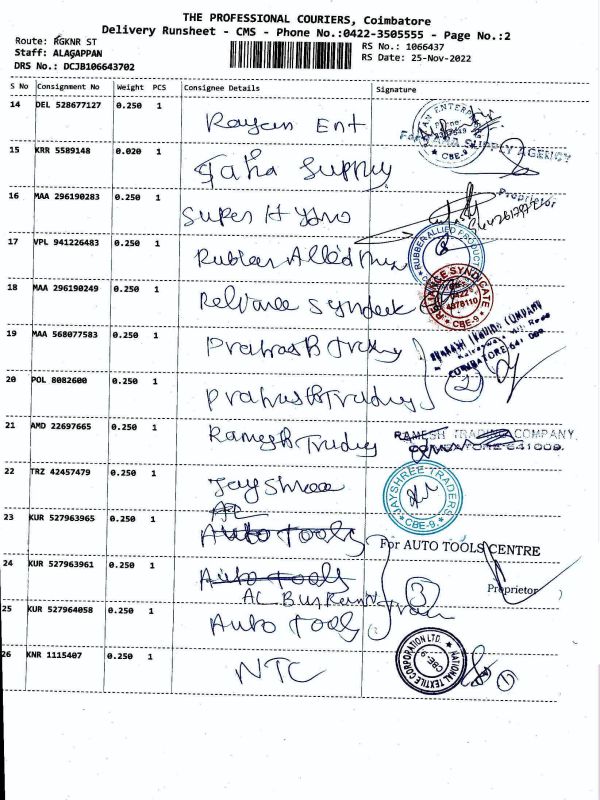 THE PROFESSIONAL COURIERS, Coimbatore
Delivery Runsheet - CMS - Phone No.:0422-3505555 - Page No.:2
Route: RGKNR ST
Staff: ALAGAPPAN
DRS No.: DCJB106643702
RS No.: 1066437
RS Date: 25-Nov-2022
S No Consignment No Weight PCS Consignee Details Signature
14 DEL 528677127 0.250 1 Rayan Ent
15 KRR 5589148 0.020 1 Faha Supply
SUPPLY AGENCY
Proprietor
16 MAA 296190283 0.250 1 Super Hydro
17 VPL 941226483 0.250 1 Rubber Allied
RUBBER ALLIED PRODUCTS
18 MAA 296190249 0.250 1 Reliance Syndicate
RELIANCE SYNDICATE
0422
4978110
CBE-9
19 MAA 568077583 0.250 1 Prakash Trading
COIMBATORE-641 009
20 POL 8082600 0.250 1 Prakash Trading 2
21 AMD 22697665 0.250 1 Ramesh Trading
RAMESH TRADING COMPANY,
COIMBATORE-641009.
22 TRZ 42457479 0.250 1 Jayshree
JAYSHREE TRADERS
CBE-9.
23 KUR 527963965 0.250 1 Auto Tools
For AUTO TOOLS CENTRE
24 KUR 527963961 0.250 1 Auto Tools 3
Proprietor
25 KUR 527964058 0.250 1 Auto Tools
26 KNR 1115407 0.250 1 NTC
NATIONAL TEXTILE CORPORATION LTD.
CBE-9
1